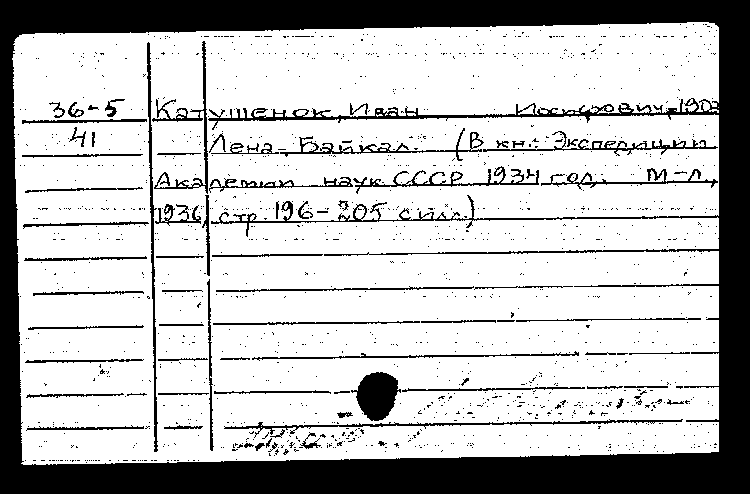 36-5 Катушенок, Иван Иосифович, 1903
41 Лена-Байкал. (В кн.: Экспедиции
Академии наук СССР 1934 год. М-Л,
1936, стр. 196-205 с илл.)